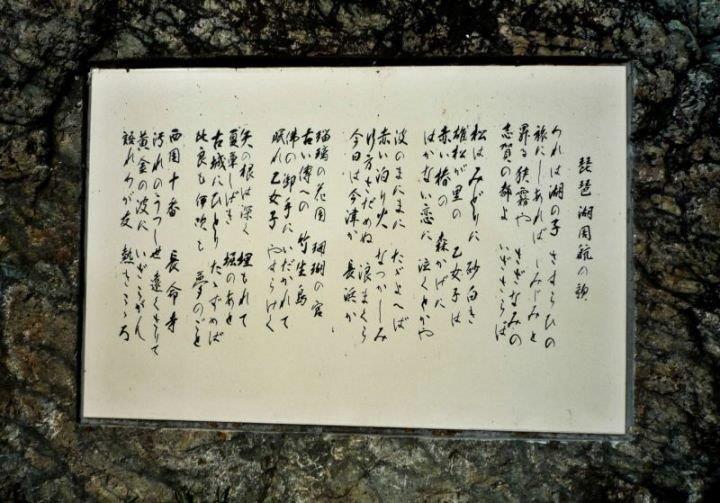 琵琶湖周航の歌
われは湖の子 さすらひの
旅にしあれば しみじみと
昇る狭霧や さざなみの
志賀の都よ いざさらば
松はみどりに 砂白き
雄松が里の 乙女子は
赤い椿の 森かげに
はかない恋に 泣くとかや
波のまにまに たゞよへば
赤い泊り火 なつかしみ
行方さだめぬ 浪まくら
今日は今津か 長浜か
瑠璃の花園 珊瑚の宮
古い傳への 竹生島
佛の御手に いだかれて
眠れ乙女子 やすらけく
矢の根は深く 埋もれて
夏草しげき 堀のあと
古城にひとり たゝずめば
比良も伊吹も 夢のごと
西国十番 長命寺
汚れのうつし世 遠くさりて
黄金の波に いざこがん
語れわが友 熱きこゝろ